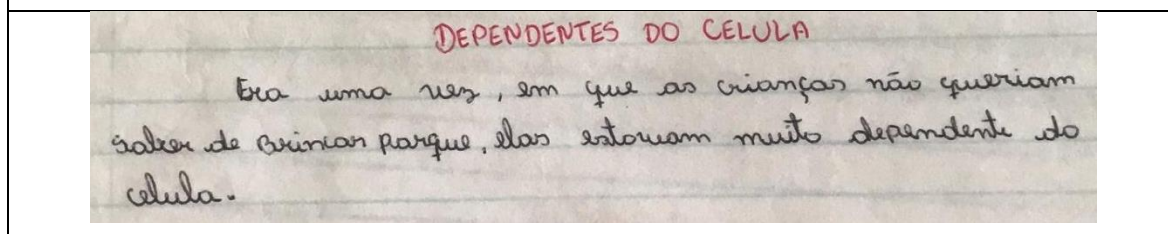 DEPENDENTES DO CELULA
Era uma vez, em que as crianças não queriam
saber de Brincar parque, elas estavam muito dependente do
celula.